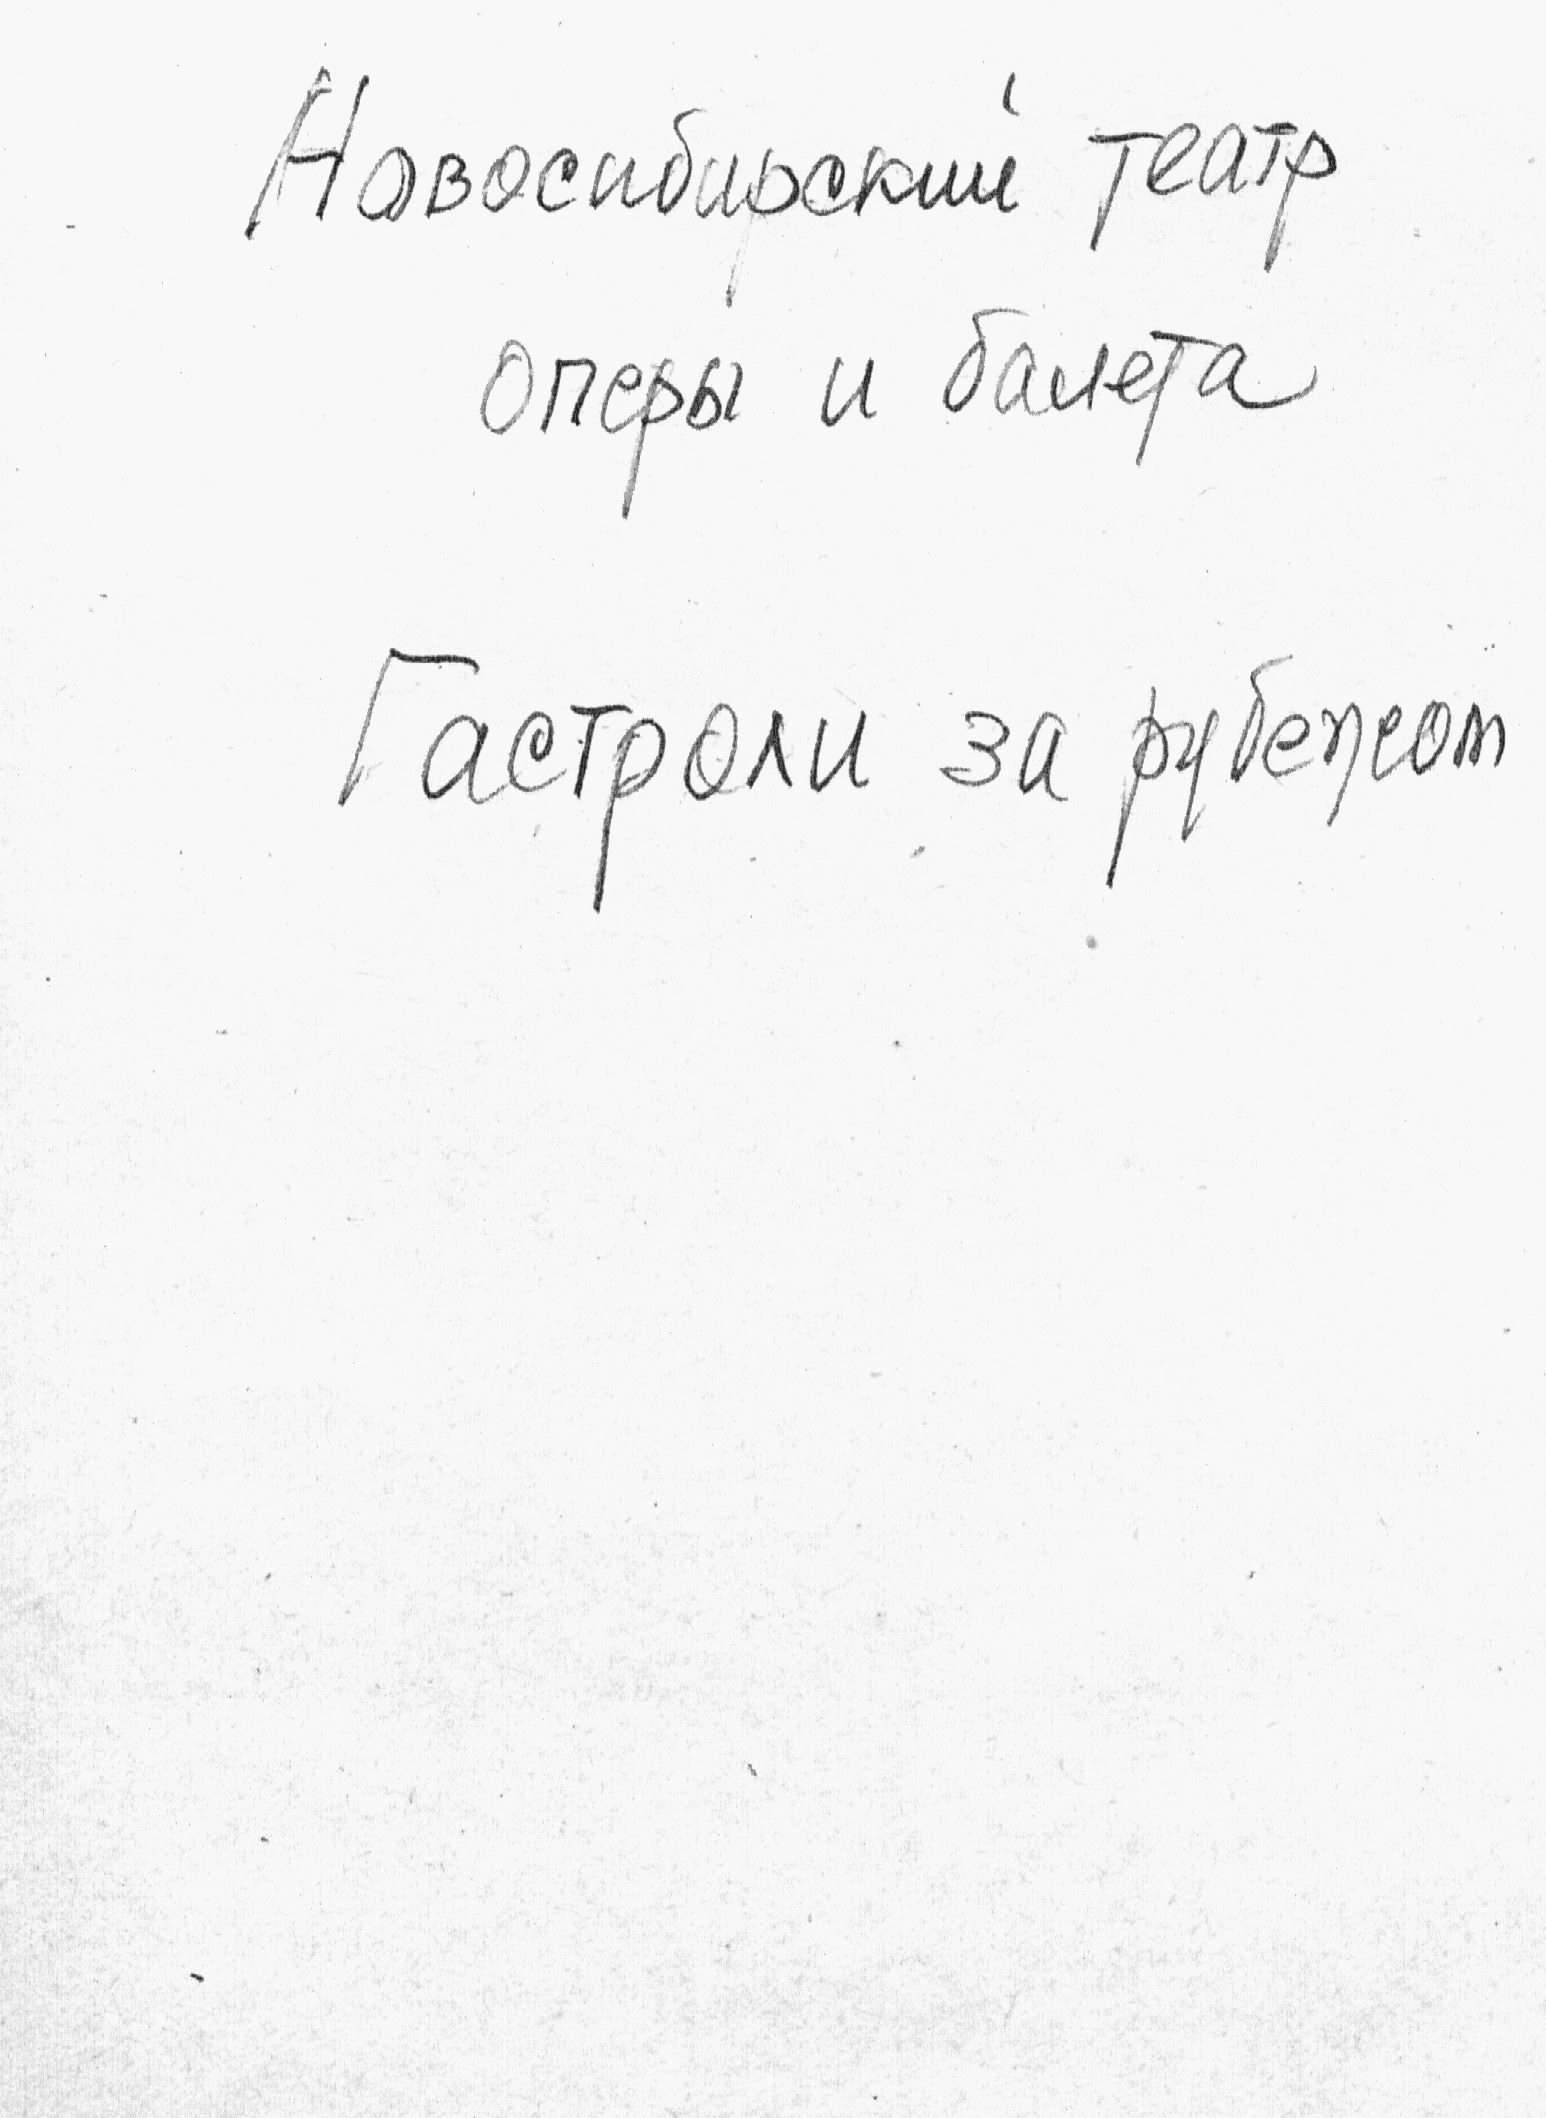 Новосибирский театр
оперы и балета
Гастроли за рубежом